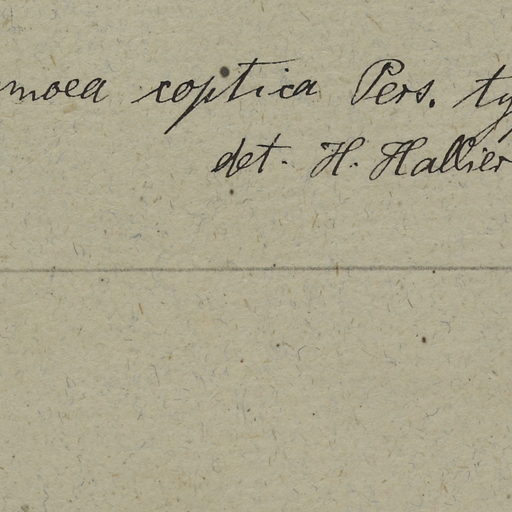 moea coptica Pers. ty
det. H. Hallier